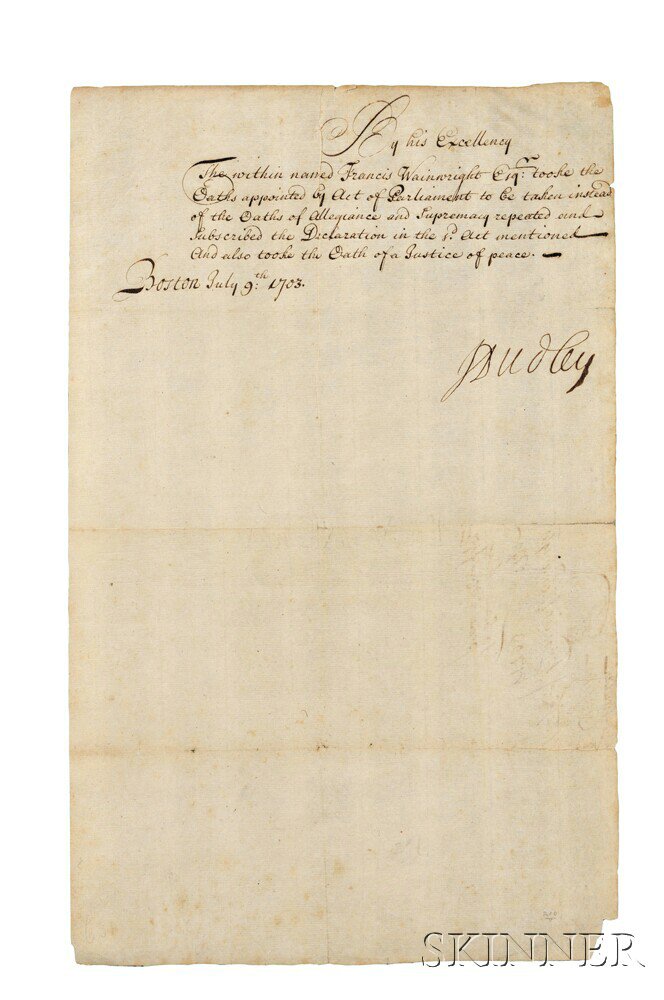 By his Excellency
The within named Francis Wainwright Esqr: tooke the
Oaths appointed by Act of Parliament to be taken instead
of the Oaths of Allegiance and Supremacy repeated and
Subscribed the Declaration in the sd. Act mentioned
And also tooke the Oath of a Justice of peace.
Boston July 9:th 1703.
JDudley
SKINNER